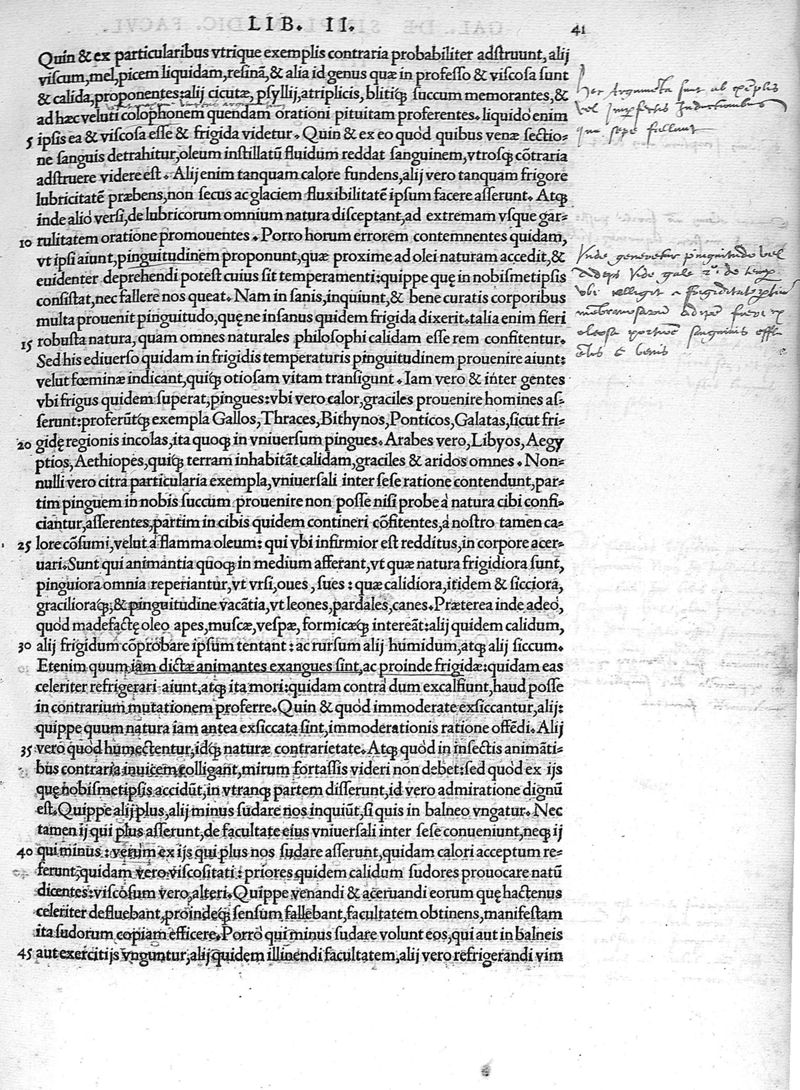 LIB. II. 41
Quin & ex particularibus vtrique exemplis contraria probabiliter adstruunt, alij
viscum, mel, picem liquidam, resinã, & alia id genus quæ in professo & viscosa sunt
& calida, proponentes: alij cicutæ, psyllij, atriplicis, blitiq́; succum memorantes, &
ad hæc veluti colophonem quendam orationi pituitam proferentes. liquido enim
5 ipsis ea & viscosa esse & frigida videtur. Quin & ex eo quòd quibus venæ sectio=
ne sanguis detrahitur, oleum instillatũ fluidum reddat sanguinem, vtrosq́; cõtraria
adstruere videre est. Alij enim tanquam calore fundens, alij vero tanquam frigore
lubricitatẽ præbens, non secus ac glaciem fluxibilitatẽ ipsum facere asserunt. Atq́;
inde alio versi, de lubricorum omnium natura disceptant, ad extremam vsque gar=
10 rulitatem oratione promouentes. Porro horum errorem contemnentes quidam,
vt ipsi aiunt, pinguitudinem proponunt, quæ proxime ad olei naturam accedit, &
euidenter deprehendi potest cuius sit temperamenti: quippe quę in nobismetipsis
consistat, nec fallere nos queat. Nam in sanis, inquiunt, & bene curatis corporibus
multa prouenit pinguitudo, quę ne insanus quidem frigida dixerit. talia enim fieri
15 robusta natura, quam omnes naturales philosophi calidam esse rem confitentur.
Sed his ediuerso quidam in frigidis temperaturis pinguitudinem prouenire aiunt:
velut fœminæ indicant, quiq́; otiosam vitam transigunt. Iam vero & inter gentes
vbi frigus quidem superat, pingues: vbi vero calor, graciles prouenire homines as=
serunt: proferũtq́; exempla Gallos, Thraces, Bithynos, Ponticos, Galatas, sicut fri=
20 gidę regionis incolas, ita quoq́; in vniuersum pingues. Arabes vero, Libyos, Aegy
ptios, Aethiopes, quiq́; terram inhabitãt calidam, graciles & aridos omnes. Non=
nulli vero citra particularia exempla, vniuersali inter sese ratione contendunt, par=
tim pinguem in nobis succum prouenire non posse nisi probe à natura cibi confi=
ciantur, asserentes, partim in cibis quidem contineri cõfitentes, à nostro tamen ca=
25 lore cõsumi, velut à flamma oleum: qui vbi infirmior est redditus, in corpore acer=
uari. Sunt qui animantia quoq́; in medium afferant, vt quæ natura frigidiora sunt,
pinguiora omnia reperiantur, vt vrsi, oues, sues: quæ calidiora, itidem & sicciora,
graciliora q́;, & pinguitudine vacãtia, vt leones, pardales, canes. Præterea inde adeo,
quòd madefactę oleo apes, muscæ, vespæ, formicæq́; intereãt: alij quidem calidum,
30 alij frigidum cõprobare ipsum tentant: ac rursum alij humidum, atq́; alij siccum.
Etenim quum iam dictæ animantes exangues sint, ac proinde frigidæ: quidam eas
celeriter refrigerari aiunt, atq́; ita mori: quidam contrà dum excalfiunt, haud posse
in contrarium mutationem proferre. Quin & quòd immoderate exsiccantur, alij:
quippe quum natura iam antea exsiccata sint, immoderationis ratione offẽdi. Alij
35 vero quòd humectentur, idq́; naturæ contrarietate. Atq́; quòd in insectis animãti=
bus contraria inuicem colligant, mirum fortassis videri non debet: sed quòd ex ijs
quę nobismetipsis accidũt, in vtranq́; partem disserunt, id vero admiratione dignũ
est. Quippe alij plus, alij minus sudare nos inquiũt, si quis in balneo vngatur. Nec
tamen ij qui plus asserunt, de facultate eius vniuersali inter sese conueniunt, neq́; ij
40 qui minus: verum ex ijs qui plus nos sudare asserunt, quidam calori acceptum re=
ferunt, quidam vero viscositati: priores quidem calidum sudores prouocare natũ
dicentes: viscosum vero, alteri. Quippe venandi & aceruandi eorum quę hactenus
celeriter defluebant, proindeq́; sensum fallebant, facultatem obtinens, manifestam
ita sudorum copiam efficere. Porrò qui minus sudare volunt eos, qui aut in balneis
45 aut exercitijs vnguntur, alij quidem illinendi facultatem, alij vero refrigerandi vim